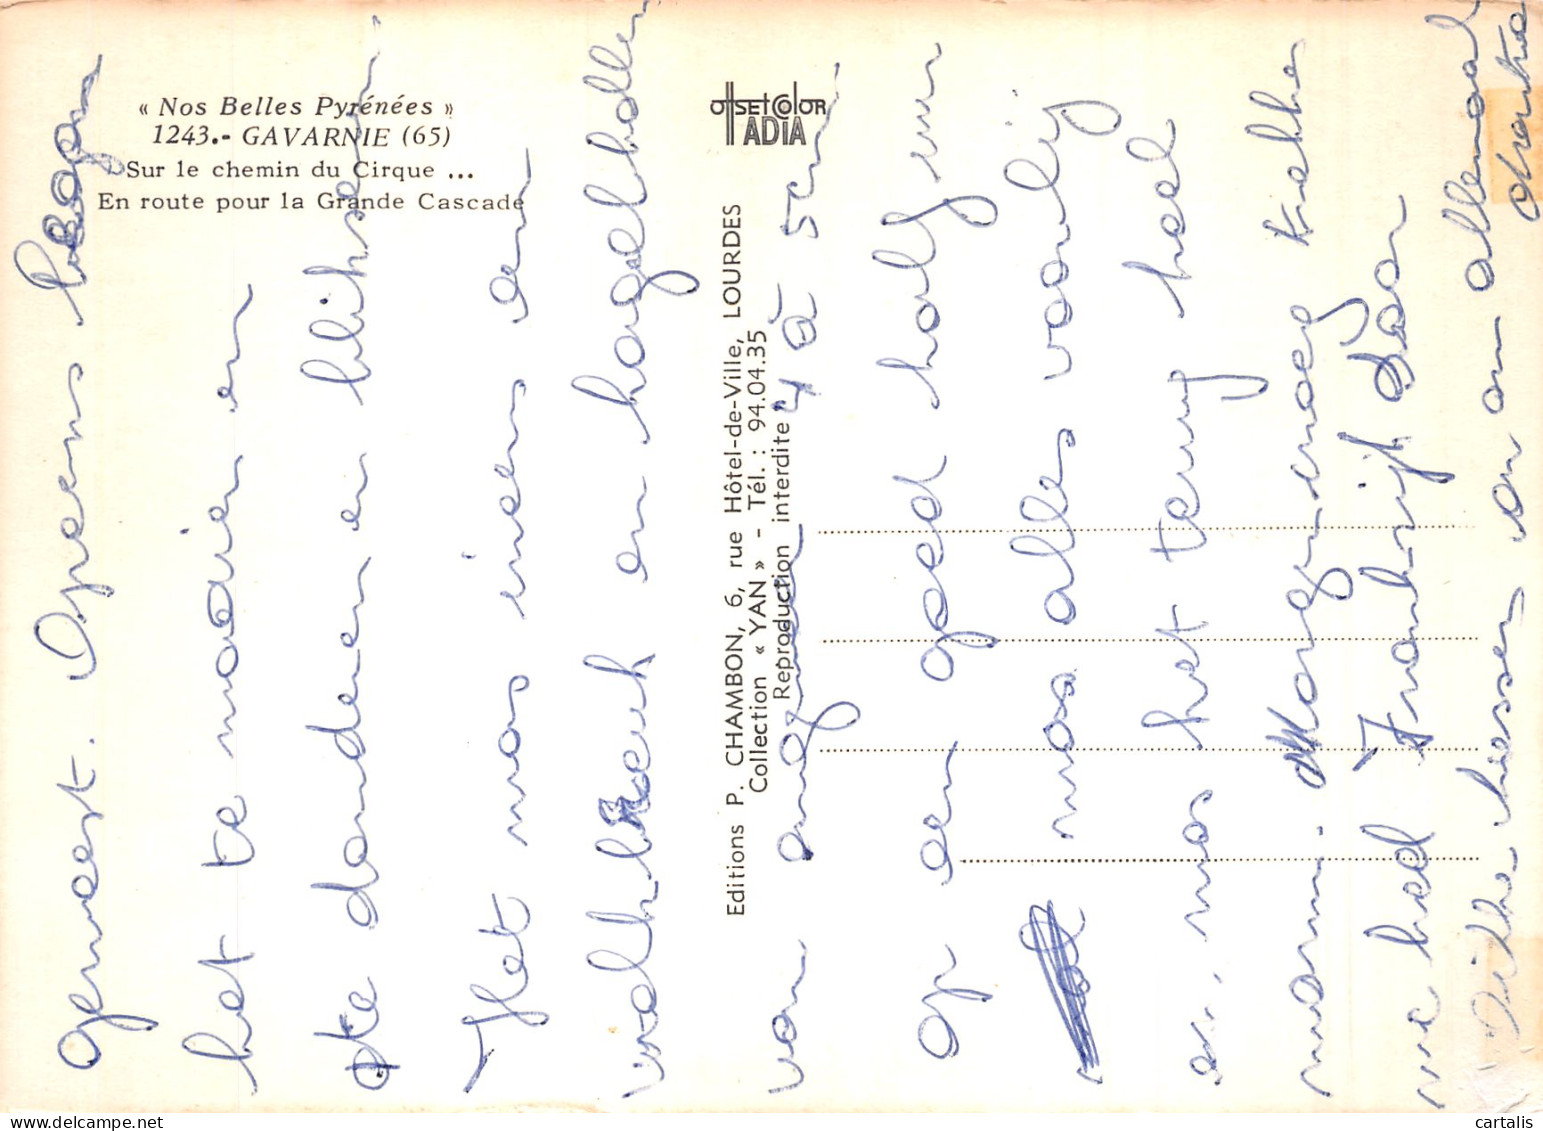 « Nos Belles Pyrénées »
1243.- GAVARNIE (65)
Sur le chemin du Cirque ...
En route pour la Grande Cascade
OFFSETCOLOR
ADIA
Editions P. CHAMBON, 6, rue Hôtel-de-Ville, LOURDES
Collection « YAN » - Tél. : 94.04.35
Reproduction interdite
geweest. Opeens begon
het te waaien en
te donderen en bliksem
Het was ineens een
wolkbreuk en hagelbollen
van ongeveer 4 à 5 cm
op een goed half uur
was alles voorbij
en was het terug heel
warm. Morgen nog
we heel Frankrijk door
Dikke kussen van en allemaal